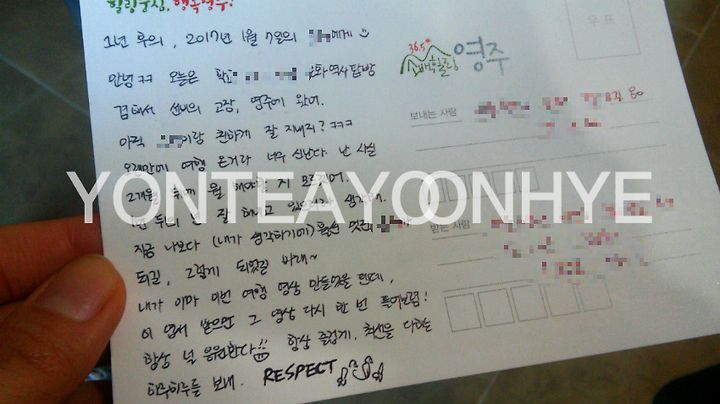 힐링중심, 행복영주!
1년 후의, 2017년 1월 7일의 에게
우표
36.5°
소백힐링 영주
안녕ㅋㅋ 오늘은 화역사탐방
겸해서 선비의 고장, 영주에 왔어.
보내는 사람
아직 이랑 친하게 잘 지내지? ㅋㅋㅋ
오랜만에 여행 온거라 너무 신난다 난 사실
2개월 뒤에 뭘 해야 지 모르
YONTEAYOONHYE
1년 뒤의 넌 잘 하고 생각해.
받는 사람
지금 나보다 (내가 생각하기에) 훨씬 멋진
되길, 그렇게 되었길 바래~
내가 아마 이번 여행 영상 만들었을 텐데,
이 엽서 받으면 그 영상 다시 한 번 틀어보렴!
항상 널 응원한다 항상 즐겁게, 최선을 다하는
하루하루를 보내. RESPECT